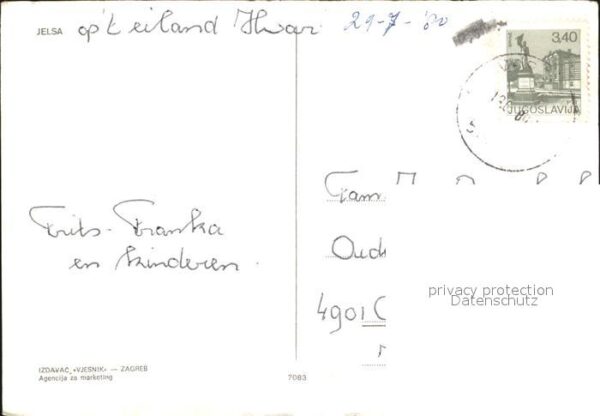 JELSA op't eiland Hvar 29-7-'80
3,40
JUGOSLAVIJA
Frits-Franka
en kinderen.
Fam.
Oud
4901
privacy protection
Datenschutz
IZDAVAČ „VJESNIK“ — ZAGREB
Agencija za marketing
7083